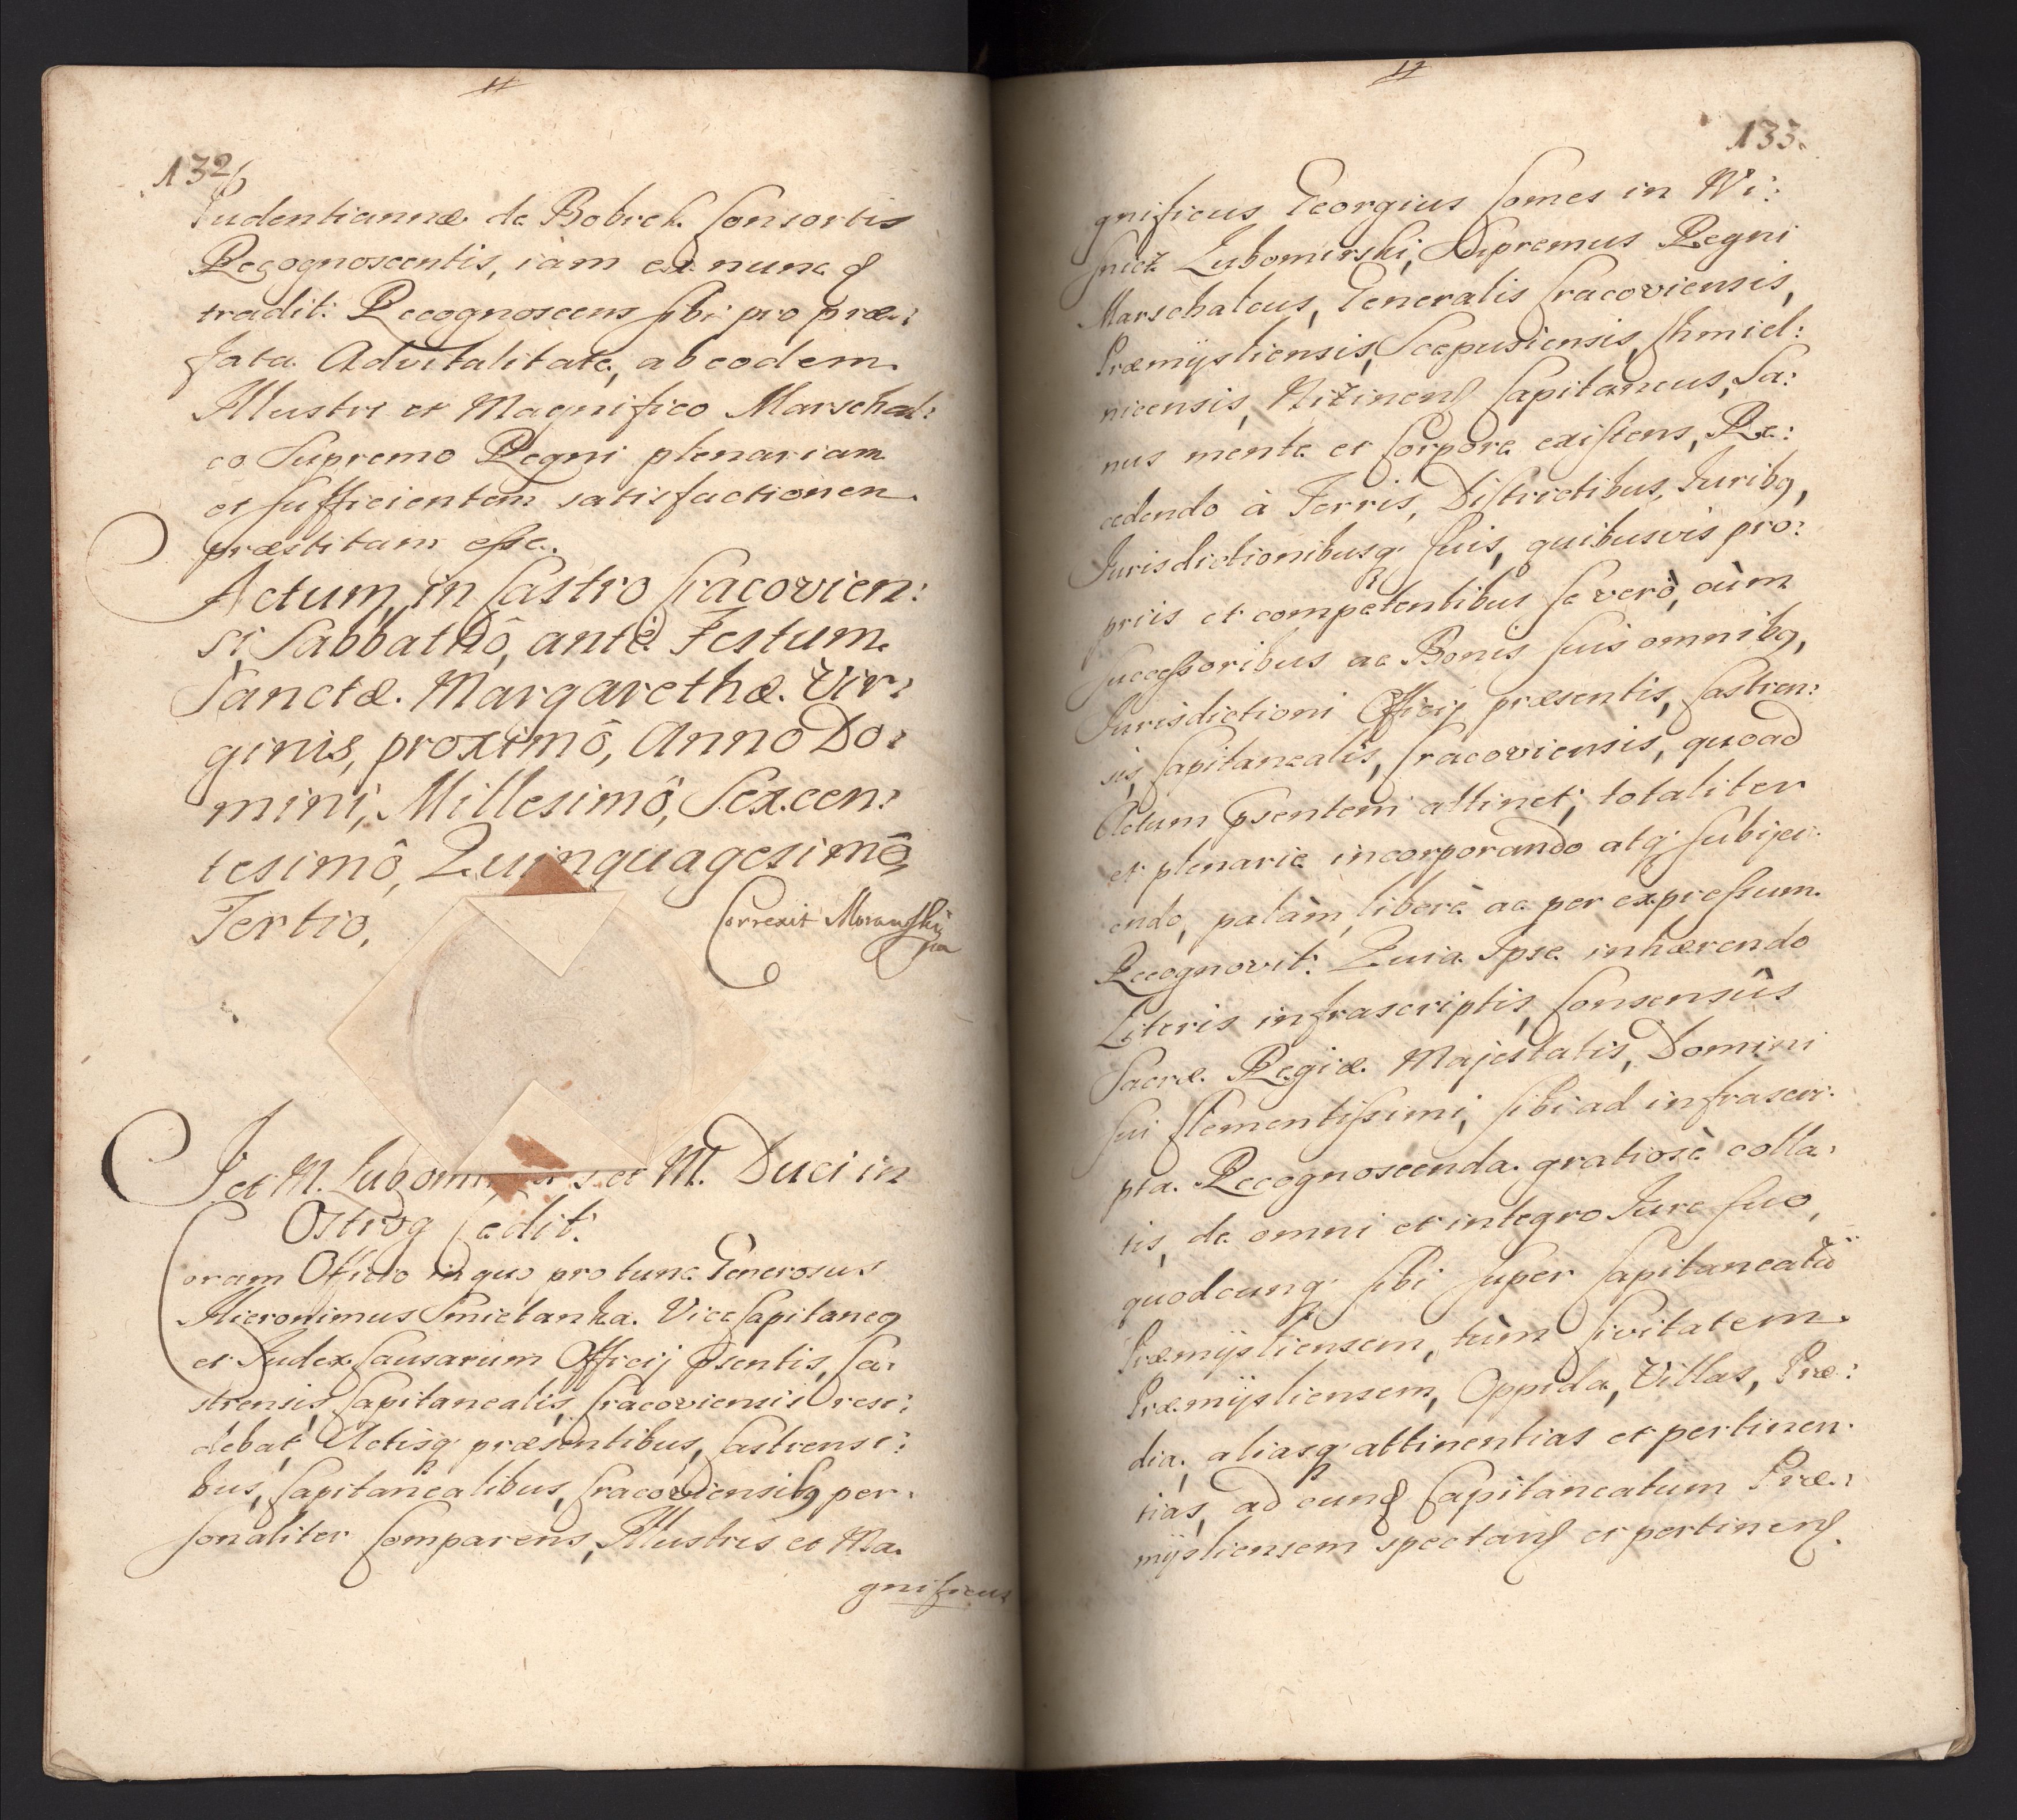 132
Pudentiannæ de Bobrek Consortis
Recognoscentis, iam ex nunc
tradit: Recognoscens sibi pro præ:
fata Advitalitate, ab eodem
Illustri et Magnifico Marschal:
co Supremo Regni plenariam
et sufficientem satisfactionem
præstitam esse.
Actum, in Castro Cracovien:
si Sabbathô, ante Festum
Sanctæ Margarethæ Vir:
ginis, proximô, Anno Do:
mini, Millesimô, Sexcen:
tesimô, Quinquagesimô,
Tertio,
Correxit Morawskij
I et M. Lubomi s. et M. Duci in
Ostrog Cedit:
Coram Officio in quo pro tunc Generosus
Hieronimus Smietanka Vice Capitaneq
et Judex Causarum Officij psentis, Ca:
strensis Capitanealis Cracoviensis rese:
debat, Actisq præsentibus, Castrensi:
bus, Capitanealibus, Cracoviensibq per:
sonaliter Comparens, Illustris et Ma.
gnificus
133.
gnificus Georgius Comes in Wi:
snicz Lubomirski, Supremus Regni
Marschalcus, Generalis Cracoviensis,
Præmÿsliensis, Scepusiensis, Chmiel:
nicensis, Nizinens Capitaneus, Sa:
nus mente et Corpore existens, Re:
cedendo à Terris, Districtibus, Juribq,
Jurisdictionibusq suis, quibusvis pro:
priis et competentibus se verò, cùm
successoribus ac Bonis suis omnibq,
Jurisdictioni Officij præsentis, Castren:
sis, Capitanealis, Cracoviensis, quoad
Actum psentem attinet, totaliter
et plenarie incorporando atq subijci:
endo, palàm, liberè ac per expressum
Recognovit: Quia Ipse inhærendo
Literis infrascriptis, Consensûs
Sacræ Regiæ Majestatis, Domini
sui Clementissimi, sibi ad infrascri:
pta Recognoscenda gratiosè colla:
tis, de omni et integro Jure suo,
quodcunq sibi super Capitaneatũ
Præmÿsliensem, tùm Civitatem
Præmÿsliensem, Oppida, Villas, Præ:
dia, aliasq attinentias et pertinen:
tias, ad eund Capitaneatum Præ:
mÿsliensem spectans et pertinens.